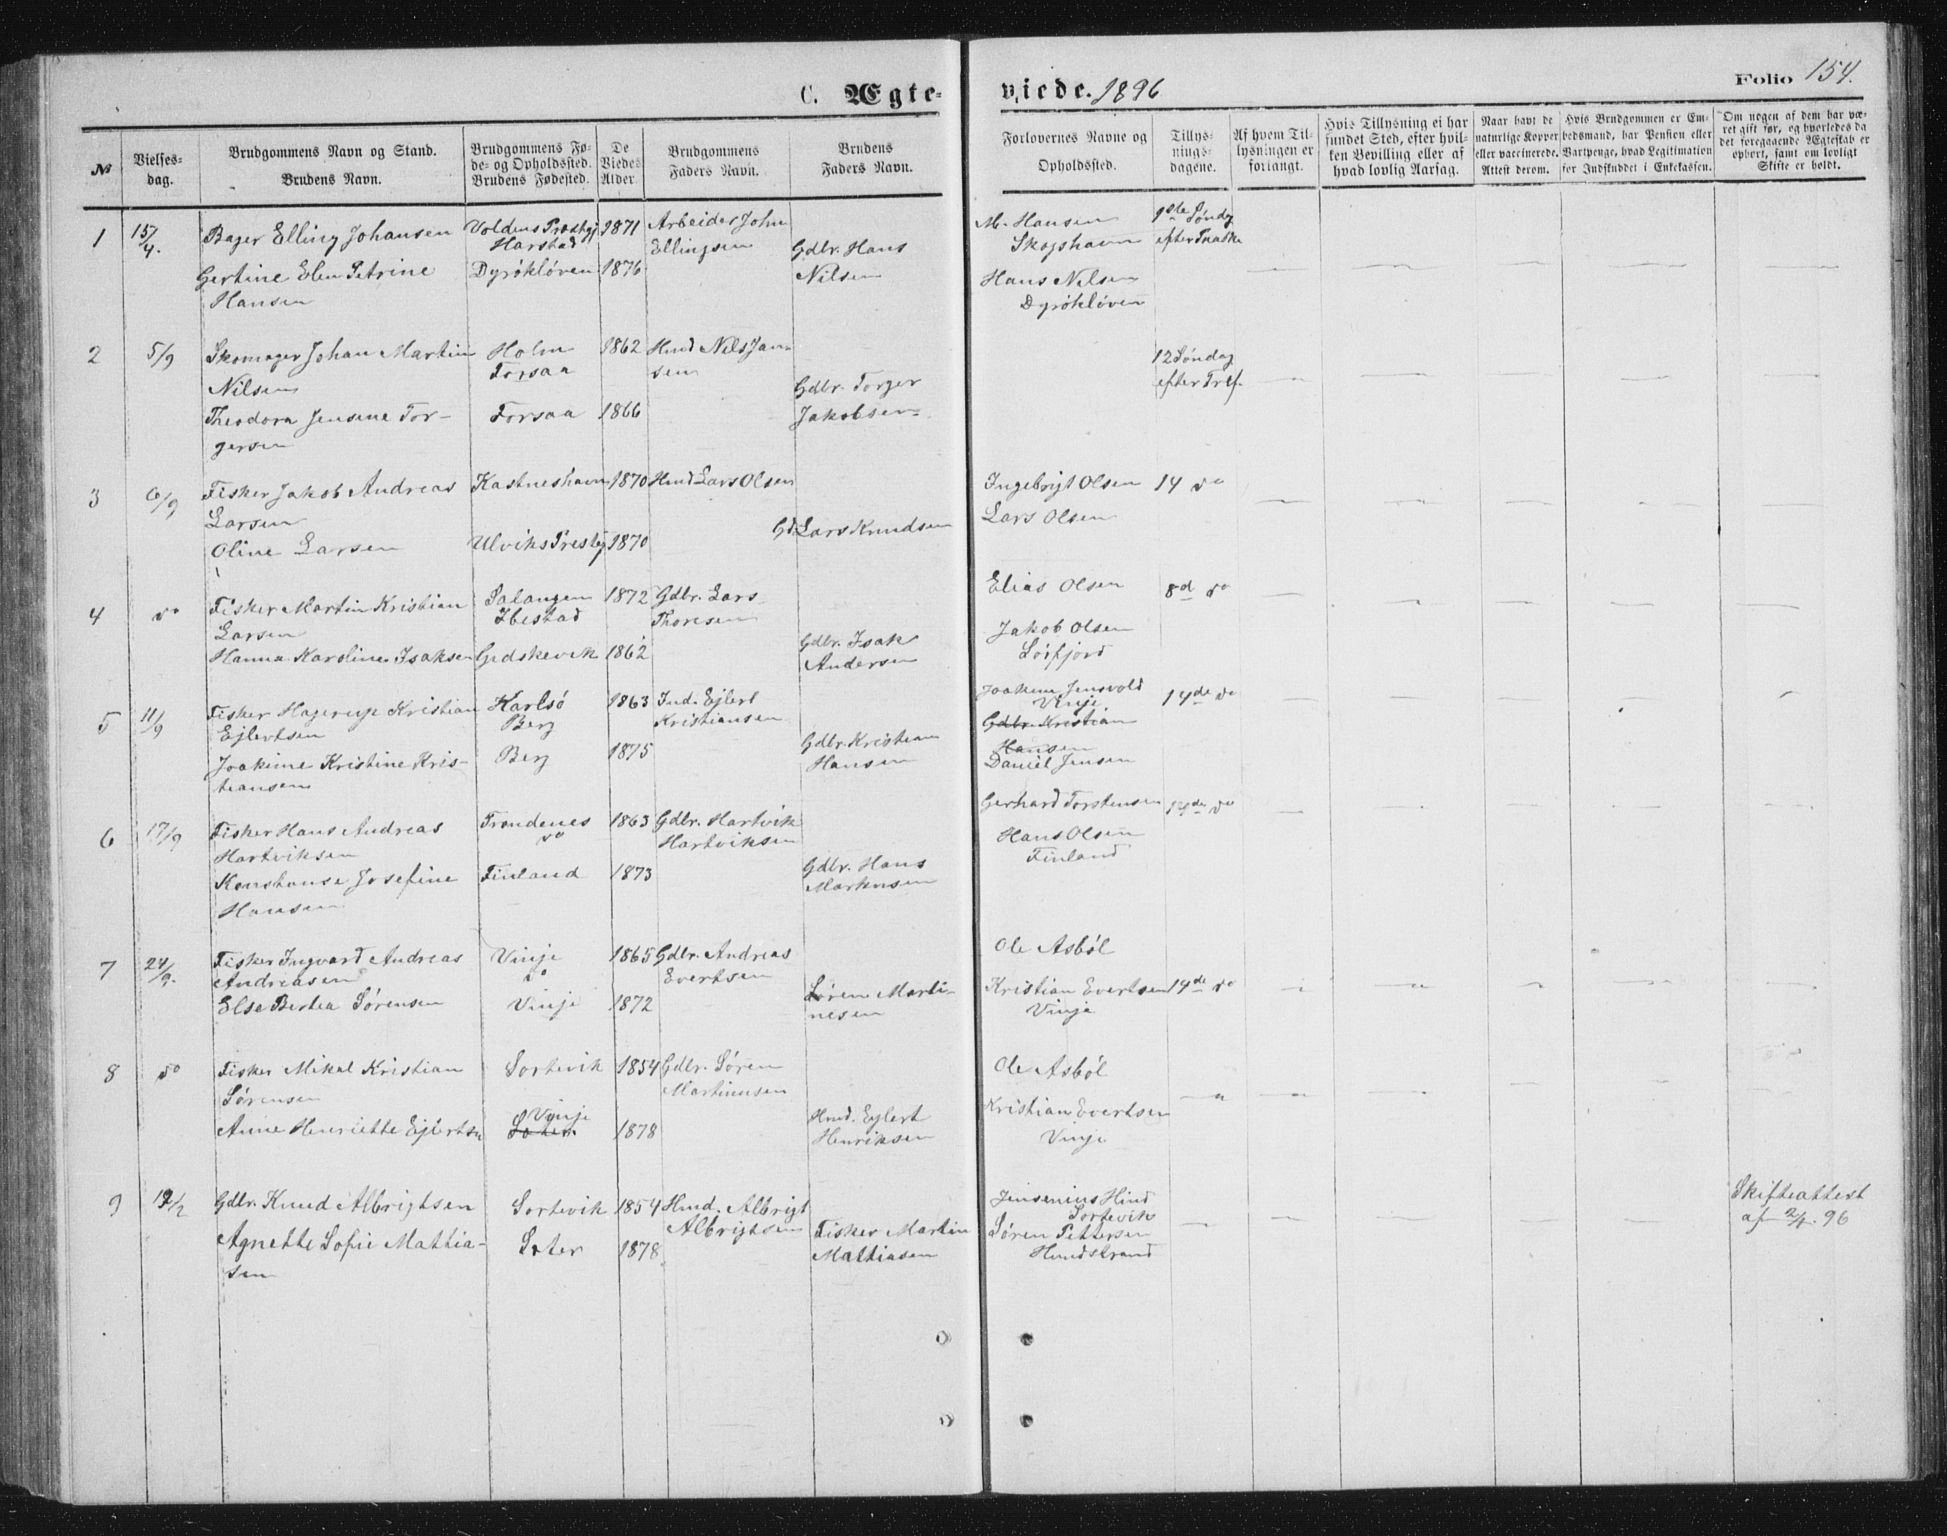 C. Ægte-
viede. 1896
Folio 154.
№
Vielses-
dag.
Brudgommens Navn og Stand.
Brudens Navn.
Brudgommens Fø-
de- og Opholdssted.
Brudens Fødested.
De
Viedes
Alder.
Brudgommens
Faders Navn.
Brudens
Faders Navn.
Forlovernes Navne og
Opholdssted.
Tillys-
nings-
dagene.
Af hvem Til-
lysningen er
forlangt.
Hvis Tillysning ei har
fundet Sted, efter hvil-
ken Bevilling eller af
hvad lovlig Aarsag.
Naar havt de
naturlige Kopper
eller vaccinerede.
Attest derom.
Hvis Brudgommen er Em-
bedsmand, har Pension eller
Vartpenge, hvad Legitimation
for Indskuddet i Enkekassen.
Om nogen af dem har væ-
ret gift før, og hvorledes da
det foregaaende Ægteskab er
ophørt, samt om lovligt
Skifte er holdt.
1 15/4. Bager Elling Johansen Voldens Prestgj 1871 Arbeider John
Harstad Ellingsen
Gertine Elen Petrine Dyrökløven 1876 Gdbr. Hans
Hansen Nilsen
M. Hansen 1ste Søndg
Skogshavn efter Paaske
Hans Nilsen
Dyrökløven
2 5/9 Skomager Johan Martin Holm 1862 Hmd Nils Jan-
Nilsen Forsaa sen
Theodora Jensine Tor- Forsaa 1866 Gdbr. Torger
gersen Jakobsen
12 Søndag
efter Tref.
3 6/9 Fisker Jakob Andreas Kastneshavn 1870 Hmd Lars Olsen
Larsen
Oline Larsen Ulviks Prestgj 1870 Gd. Lars Knudsen
Ingebrigt Olsen 14 do
Lars Olsen
4 do Fisker Martin Kristian Salangen 1872 Gdbr. Lars
Larsen Ibestad Thoresen
Hanna Karoline Isaksen Gidskevik 1862 Gdbr. Isak
Andersen
Elias Olsen 8d do
Jakob Olsen
Lösfjord
5 11/9 Fisker Hagerup Kristian Karlsö 1863 Ind. Ejlert
Ejlertsen Berg Kristiansen
Joakime Kristine Kris- Berg 1875 Gdbr. Kristian
tiansen Hansen
Joakim Jensvold 14de do
Vinje
Gdbr. Kristian
Hansen
Daniel Jensen
6 17/9 Fisker Hans Andreas Trondenes 1863 Gdbr. Hartvik
Hartviksen do Hartviksen
Konstanse Josefine Finland 1873 Gdbr. Hans
Hansen Markusen
Gerhard Torstensen 14de do
Hans Olsen
Finland
7 24/9. Fisker Ingvard Andreas Vinje 1865 Gdbr. Andreas
Andreasen do Evertsen
Else Bertea Sørensen Vinje 1872 Søren Marti-
nesen
Ole Asböl
Kristian Evertsen 14de do
Vinje
8 do Fisker Mikal Kristian Sortevik 1854 Gdbr. Sören
Sörensen Martinusen
Vinje
Anne Henriette Ejlertsn Soter 1878 Hmd. Eylert
Henriksen
Ole Asböl
Kristian Evertsen
Vinje
9 Gdbr. Knud Albrigtsen Sortevik 1854 Hmd. Albrigt
Albrigtsen
Agnethe Sofie Mathia- Soter 1878 Fisker Martin
sen Mathiasen
Jensenius Hind
Sortevik
Søren Pettersen
Hundstrand
Skifteattest
af 2/1. 96